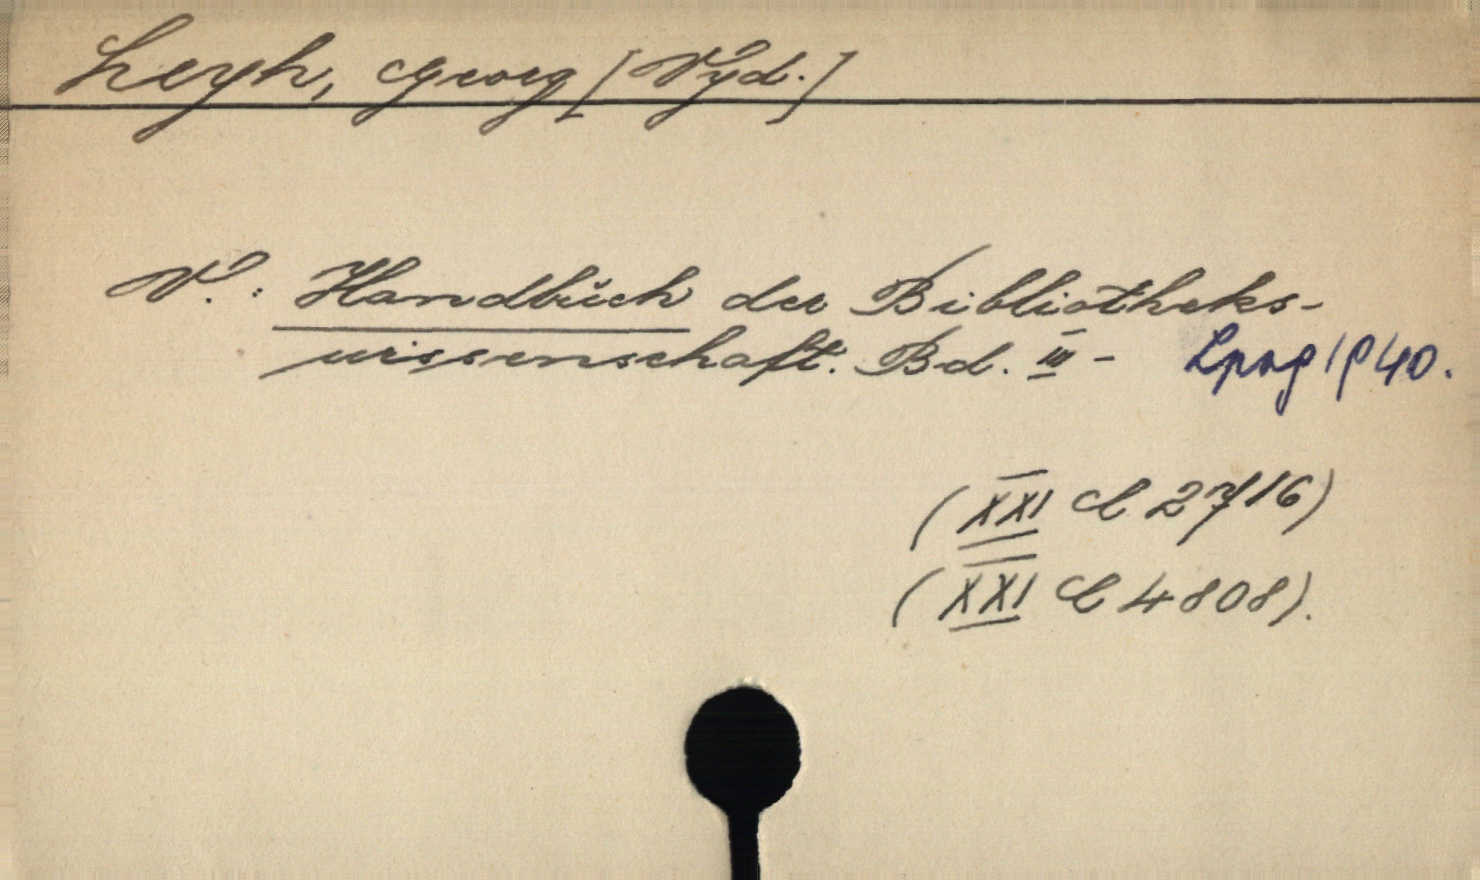 Leyh, Georg [Vyd.]
V.: Handbuch der Bibliotheks-
wissenschaft. Bd. III - Lpzg 1940.
(XXI C 2716)
(XXI C 4808).